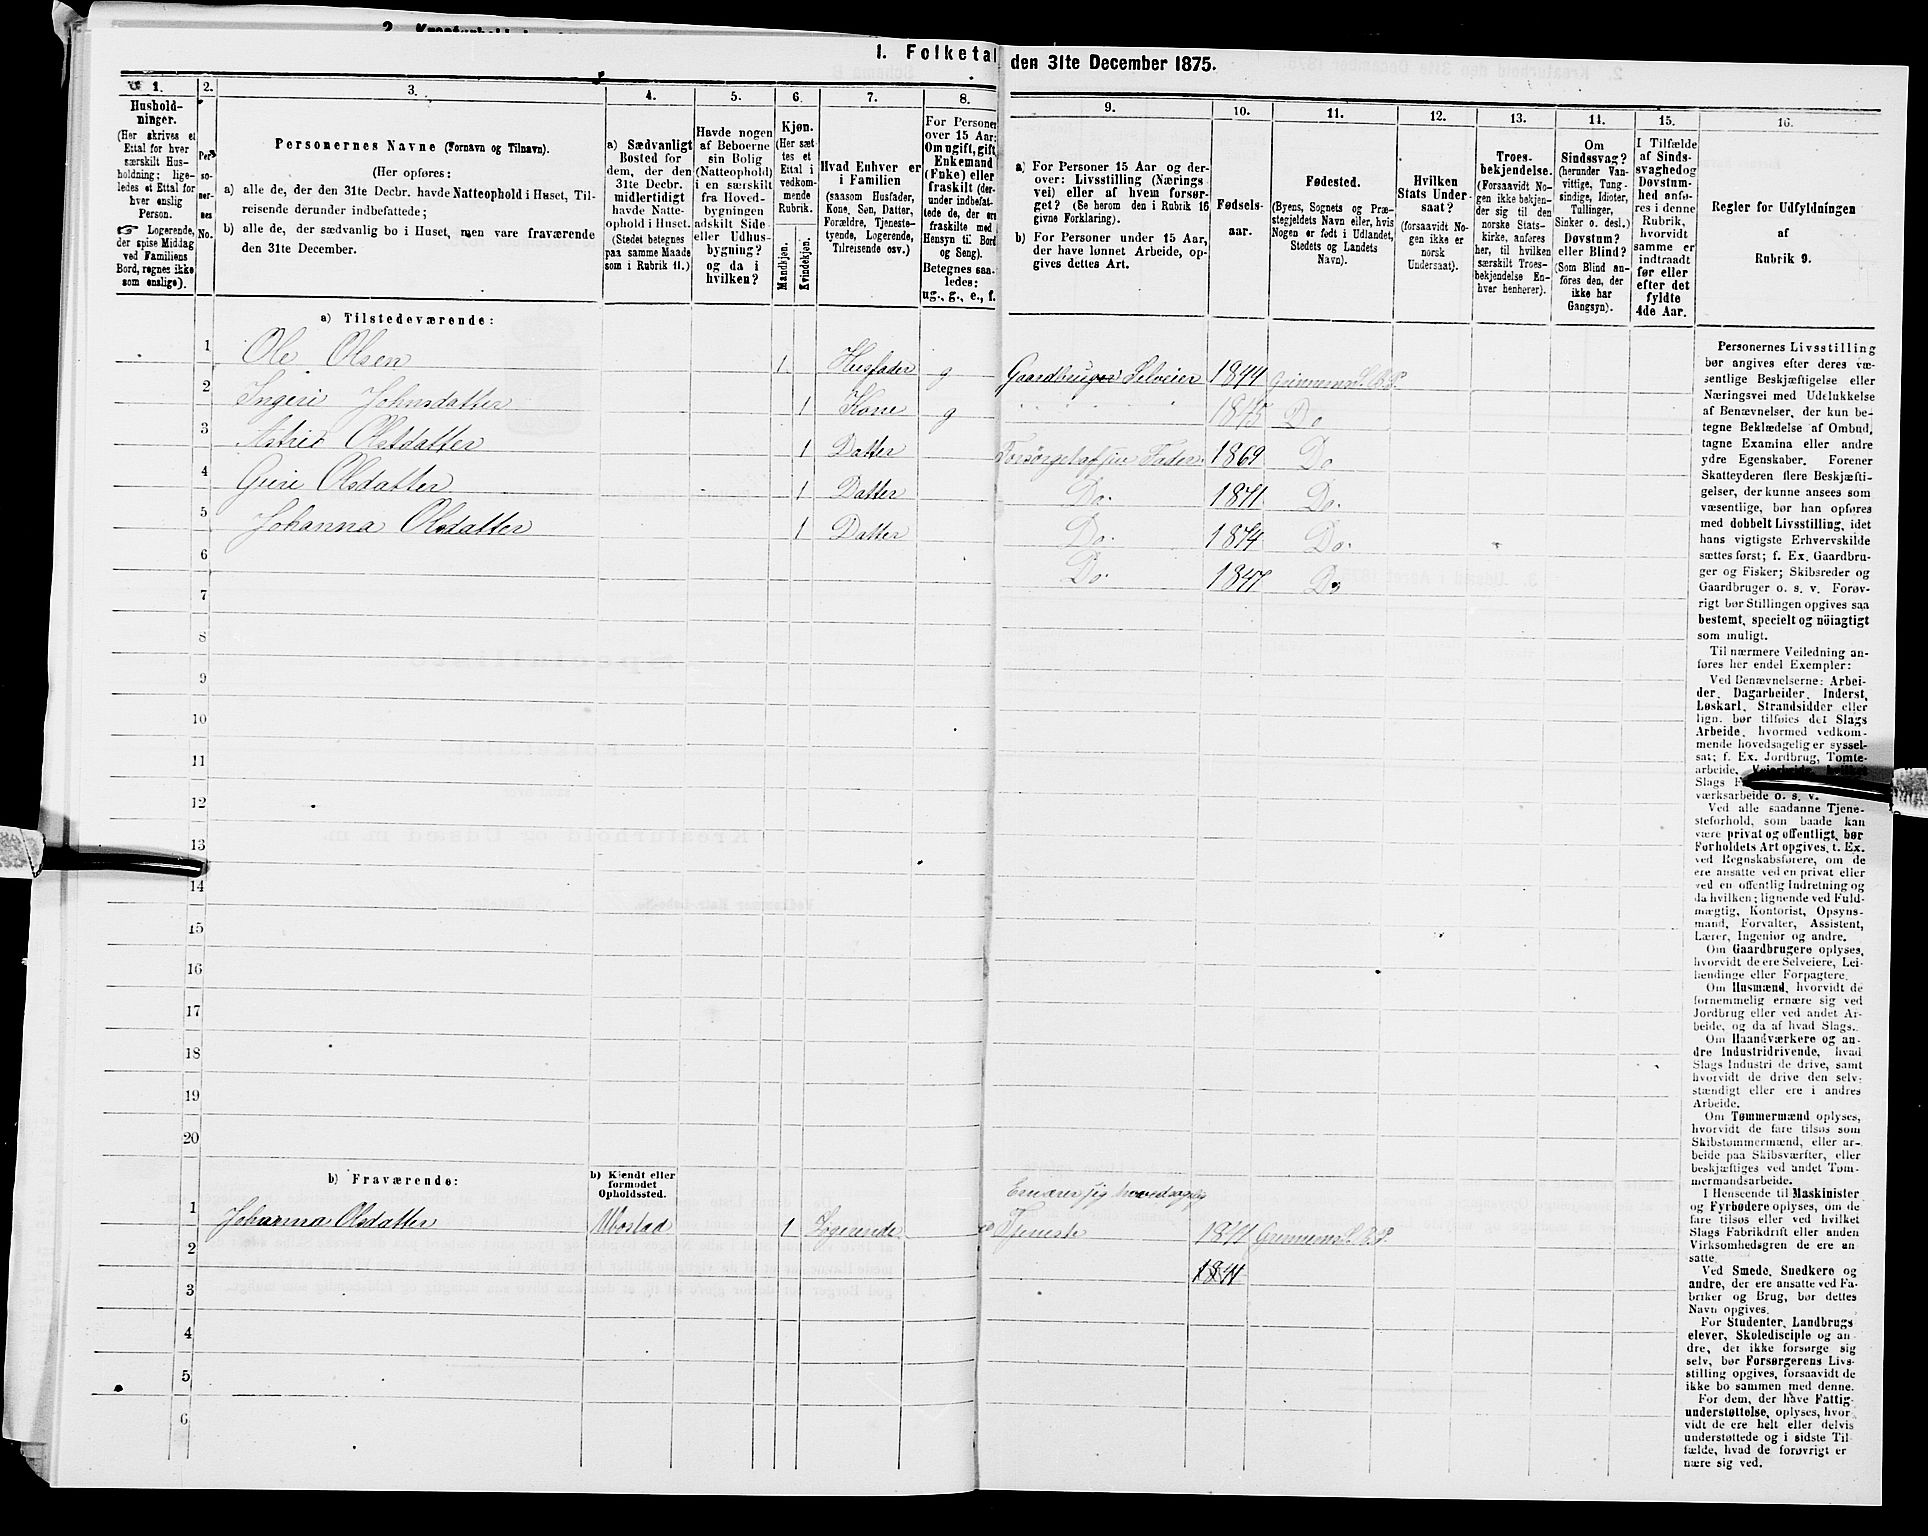 2. Kreaturhold
1. Folketal den 31te December 1875.
1.
Hushold-
ninger.
(Her skrives et
Ettal for hver
særskilt Hus-
holdning; lige-
ledes et Ettal for
hver enslig
Person.
☞ Logerende,
der spise Middag
ved Familiens
Bord, regnes ikke
som enslige).
2.
Per-
so-
ner-
nes
No.
3.
Personernes Navne (Fornavn og Tilnavn).
(Her opføres:
a) alle de, der den 31te Decbr. havde Natteophold i Huset, Til-
reisende derunder indbefattede;
b) alle de, der sædvanlig bo i Huset, men vare fraværende
den 31te December.
4.
a) Sædvanligt
Bosted for
dem, der den
31te Decbr.
midlertidigt
havde Natte-
ophold i Huset.
(Stedet betegnes
paa samme Maade
som i Rubrik 11.)
5.
Havde nogen
af Beboerne
sin Bolig
(Natteophold)
i en særskilt
fra Hoved-
bygningen
adskilt Side-
eller Udhus-
bygning?
og da i
hvilken?
6.
Kjøn.
(Her sæt-
tes et
Ettal i
vedkom-
mende
Rubrik.
Mandkjøn.
Kvindekjøn.
7.
Hvad Enhver er
i Familien
(saasom Husfader,
Kone, Søn, Datter,
Forældre, Tjeneste-
tyende, Logerende,
Tilreisende osv.)
8.
For Personer
over 15 Aar:
Om ugift, gift,
Enkemand
(Enke) eller
fraskilt (der-
under indbefat-
tede de, der ere
fraskilte med
Hensyn til Bord
og Seng).
Betegnes saa-
ledes:
ug., g., e., f.
9.
a) For Personer 15 Aar og der-
over: Livsstilling (Nærings-
vei) eller af hvem forsør-
get? (Se herom den i Rubrik 16
givne Forklaring).
b) For Personer under 15 Aar,
der have lønnet Arbeide, op-
gives dettes Art.
10.
Fødsels-
aar.
11.
Fødested.
(Byens, Sognets og Præ-
stegjeldets Navn eller, hvis
Nogen er født i Udlandet,
Stedets og Landets
Navn).
12.
Hvilken
Stats Under-
saat?
(forsaavidt No-
gen ikke er
norsk
Undersaat).
13.
Troes-
bekjendelse.
(Forsaavidt No-
gen ikke bekjen-
der sig til den
norske Stats-
kirke, anføres
her, til hvilken
særskilt Troes-
bekjendelse En-
hver henhører).
14.
Om
Sindssvag?
(herunder Van-
vittige, Tung-
sindige, Idioter,
Tullinger,
Sinker o. desl.)
Døvstum?
eller Blind?
(Som Blind an-
føres den, der
ikke har
Gangsyn).
15.
I Tilfælde
af Sinds-
svaghed og
Døvstum-
hed anfø-
res i denne
Rubrik,
hvorvidt
samme er
indtraadt
før eller
efter det
fyldte
4de Aar.
16.
Regler for Udfyldningen
af
Rubrik 9.
a) Tilstedeværende:
1 Ole Olsen 1 Husfader g Gaardbruger Selveier 1844
2 Ingeri Johnsdatter 1 Kone g Do
3 Astrid Olsdatter 1 Datter Forsørget af sin Fader 1869 Do
4 Guri Olsdatter 1 Datter Do. 1871 Do.
5 Johanna Olsdatter 1 Datter Do. 1874 Do.
6 Do. 1847 Do
7
8
9
10
11
12
13
14
15
16
17
18
19
20
b) Fraværende:
b) Kjendt eller
formodet
Opholdssted.
Ernærer sig hovedsagelig
1 Johanna Olsdatter 1 Logerende Tjeneste
2
3
4
5
6
Personernes Livsstilling
bør angives efter deres væ-
sentlige Beskjæftigelse eller
Næringsvei med Udelukkelse
af Benævnelser, der kun be-
tegne Beklædelse af Ombud,
tagne Examina eller andre
ydre Egenskaber. Forener
Skatteyderen flere Beskjæfti-
gelser, der kunne ansees som
væsentlige, bør han opføres
med dobbelt Livsstilling, idet
hans vigtigste Erhvervskilde
sættes først; f. Ex. Gaardbru-
ger og Fisker; Skibsreder og
Gaardbruger o. s. v. Forøv-
rigt bør Stillingen opgives saa
bestemt, specielt og nöiagtigt
som muligt.
Til nærmere Veiledning an-
føres her endel Exempler:
Ved Benævnelserne: Arbei-
der, Dagarbeider, Inderst,
Løskarl, Strandsidder eller
lign. bør tilføies det Slags
Arbeide, hvormed vedkom-
mende hovedsagelig er syssel-
sat; f. Ex. Jordbrug, Tomte-
arbeide, Veiarbeide, hvilket
Slags
værksarbeide o. s. v.
Ved alle saadanne Tjene-
steforhold, som baade kan
være privat og offentligt, bør
Forholdets Art opgives, t. Ex.
ved Regnskabsførere, om de
ere ansatte ved en privat eller
ved en offentlig Indretning og
da hvilken; lignende ved Fuld-
mægtig, Kontorist, Opsyns-
mand, Forvalter, Assistent,
Lærer, Ingeniør og andre.
Om Gaardbrugere oplyses,
hvorvidt de ere Selveiere, Lei-
lændinge eller Forpagtere.
Om Husmænd, hvorvidt de
fornemmelig ernære sig ved
Jordbrug eller ved andet Ar-
beide, og da af hvad Slags.
Om Haandværkere og an-
dre Industridrivende, hvad
Slags Industri de drive, samt
hvorvidt de drive den selv-
stændigt eller ere i andres
Arbeide.
Om Tømmermænd oplyses,
hvorvidt de fare tilsøs som
Skibstømmermænd, eller ar-
beide paa Skibsværfter, eller
beskjæftiges ved andet Tøm-
mermandsarbeide.
I Henseende til Maskinister
og Fyrbødere oplyses, om de
fare tilsøs eller ved hvilket
Slags Fabrikdrift eller anden
Virksomhedsgren de ere an-
satte.
Ved Smede, Snedkere og
andre, der ere ansatte ved Fa-
briker og Brug, bør dettes
Navn opgives.
For Studenter, Landbrugs-
elever, Skoledisciple og an-
dre, der ikke forsørge sig
selv, bør Forsørgerens Livs-
stilling opgives, forsaavidt de
ikke bo sammen med denne.
For dem, der have Fattig-
understøttelse, oplyses, hvor-
vidt de ere helt eller delvis
understøttede og i sidste Til-
fælde, hvad de forøvrigt er
nære sig ved.